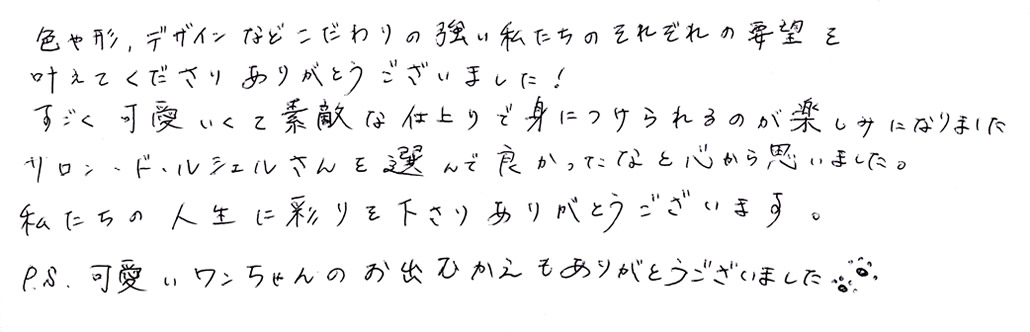 色や形,デザインなどこだわりの強い私たちのそれぞれの要望を
叶えてくださりありがとうございました!
すごく可愛いくて素敵な仕上りで身につけられるのが楽しみになりました
サロン・ド・ルシェルさんを選んで良かったなと心から思いました。
私たちの人生に彩りを下さりありがとうございます。
P.S.可愛いワンちゃんのお出むかえもありがとうございました